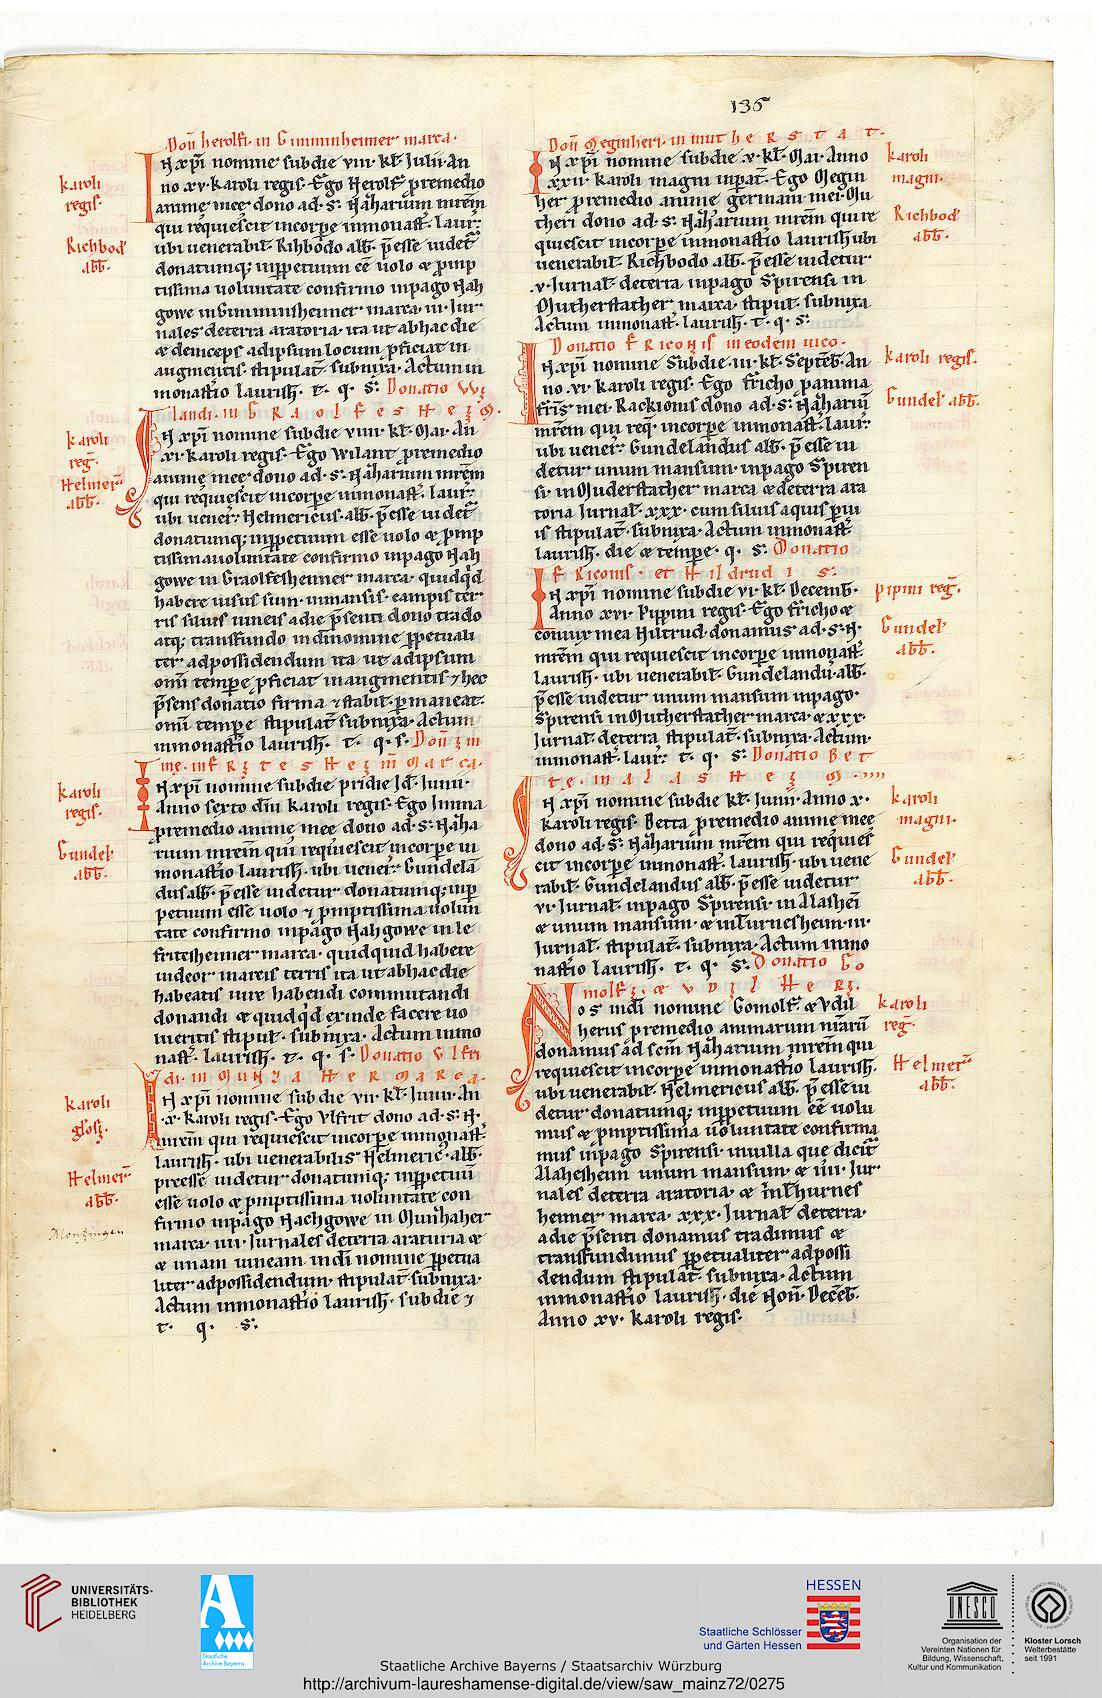 136
Don̄ herolfi. in Gimminheimer marca.
In xp̄i nomine sub die VIII. kł. Julii. An
no XV. karoli regis. Ego Herolf. p remedio
anime mee dono ad. S. N̄aẑharium m̄rem
qui requiescit in corpe in monast̄. laur̄.
ubi uenerabił. Rihbodo abb. p̄esse uidet̄
donatumq; in ppetuum ēē uolo & pmp
tissima uoluntate confirmo in pago Nah
gowe in Gimminisheimer marca. III. Jur
nales de terra aratoria. ita ut ab hac die
& deinceps ad ipsum locum pficiat in
augmentis. stipulat̄. subnixa. Actum in
monast̄io laurish̄. t. q. S. Donatio Wi
landi. in GRAOLFESHEIM.
In xp̄i nomine sub die VIIII. kł. Mai. An
XI. karoli regis. Ego Wilant p remedio
anime mee dono ad. S. Naẑharium m̄rem
qui requiescit in corpe in monast̄. laur̄.
ubi uener̄. Helmericus. abb. p̄esse uidet̄
donatumq; in ppetuum esse uolo & pmp
tissima uoluntate confirmo in pago Nah
gowe in Graolfesheimer marca. quidq̇d
habere uisus sum. in mansis. campis ter
ris siluis uineis a die p̄senti dono trado
atq; transfundo in dī nomine ppetuali
ter ad possidendum ita ut ad ipsum
om̄i tempe pficiat in augmentis & hec
p̄sens donatio firma & stabił. p maneat.
om̄i tempe stipulat̄ subnixa. Actum
in monast̄io laurish̄. t. q. s. Don̄ im
me. in FRITESHEIM Marca.
In xp̄i nomine sub die pridie Id. Junii.
Anno sexto dn̄i karoli regis. Ego Imma
p remedio anime mee dono ad. S. Naẑha
rium m̄rem qui requiescit in corpe in
monast̄io laurish̄. ubi uener̄. Gundelan
dus abb. p̄esse uidetur donatumq; in p
petuum esse uolo & pmptissima uolun
tate confirmo in pago Nahgowe in le
fritesheimer marca. quidquid habere
uideor mareis terris ita ut ab hac die
habeatis iure habendi commutandi
donandi & quidq̇d exinde facere uo
lueritis stipuł. subnixa. Actum in mo
nast̄. laurish̄. t. q. s. Donatio Ulfri
di. in MUNZAHER MARCA.
In xp̄i nomine sub die VII. kł. Junii. An
X. karoli regis. Ego Vlfrit dono ad. S. N.
m̄rem qui requiescit in corpe in monast̄.
laurish̄. ubi uenerabilis Helmeric̄. abb.
preesse uidetur donatumq; in ppetuū
esse uolo & pmptissima uoluntate con
firmo in pago Nachgowe in Munẑhaher
marca. IIII. Jurnales de terra araturia &
& unam uineam in dī nomine ppetua
liter ad possidendum. stipulat̄ subnixa.
Actum in monast̄io laurish̄. sub die &
t. q. S.
karoli
regis.
Richbod
abb.
karoli
reḡ.
Helmer̄
abb.
karoli
regis.
Gundeł
abb.
karoli
Helmer̄
abb.
Monzingen
Don̄ Meginheri. in MUTHERSTAT.
In xp̄i nomine sub die. V. kł. Mai. Anno
XXII. karoli magni inpat̄. Ego Megin
her p remedio anime germani mei. Mu
theri dono ad. S. Naẑharium m̄rem qui re
quiescit in corpe in monast̄io laurish̄ ubi
uenerabił. Richbodo abb. p̄esse uidetur
V. Jurnał. de terra in pago Spirensi in
Mutherstather marca. stipuł. subnixa
Actum in monast̄. laurish̄. t. q. S.
Donatio FRICONIS in eodem uico.
In xp̄i nomine Sub die. III. kł. Septēb. An
no. VI. karoli regis. Ego fricho p anima
fr̄is mei. Rackionis dono ad. S. Naẑhariū
m̄rem qui req̄. in corpe in monast̄. laur̄.
ubi uener̄. Gundelandus abb. p̄esse ui
detur unum mansum. in pago Spiren
si. in Muderstather marca & de terra ara
toria Jurnał. XXX. cum siluis aquis p uii
is stipulat̄. subnixa. Actum in monast̄.
laurish̄. die & tempe. q. S. Donatio
FRiconis. et Hildrudis.
In xp̄i nomine sub die VI. kł. Decemb̄.
Anno XVI. Pippini regis. Ego fricho &
coniux mea Hiltrud. donamus ad. S. N.
m̄rem qui requiescit in corpe in monast̄.
laurish̄. ubi uenerabił. Gundelandū. abb.
p̄esse uidetur unum mansum in pago.
Spirensi in Mutherstather marca. & XXX.
Jurnał. de terra stipulat̄. subnixa. Actum.
in monast̄. laur̄. t. q. S. Donatio Bet
te. in ALASHEIM.
In xp̄i nomine sub die kł. Junii. Anno X.
karoli regis. Betta p remedio anime mee
dono ad. S. Naẑharium m̄rem qui requies
cit in corpe in monast̄. laurish̄. ubi uene
rabił. Gundelandus abb. p̄esse uidetur
VI. Jurnał. in pago Spirensi. in Alashei
& unum mansum. & in Turnesheim. III.
Jurnał. stipulat̄. subnixa. Actum in mo
nast̄io laurish̄. t. q. S. Donatio Go
molfi. & UDILHERI.
Nos in dī nomine Gomolf. & Vdil
herus p remedio animarum nr̄arū
donamus ad scm̄ Naẑharium m̄rem qui
requiescit in corpe in monast̄io laurish̄.
ubi uenerabił. Helmericus abb. p̄esse ui
detur donatumq; in ppetuum ēē uolu
mus & pmptissima uoluntate confirma
mus in pago Spirensi. in uilla que dicit̄
Alahesheim unum mansum & IIII. Jur
nales de terra aratoria. & in Thurnes
heimer marca. XXX. Jurnał de terra.
a die p̄senti donamus tradimus &
transfundimus ppetualiter ad possi
dendum stipulat̄. subnixa. Actum
in monast̄io laurish̄. die Non̄. Decēb.
Anno XV. karoli regis.
karoli
magni.
Richbod
abb.
karoli regis.
Gundeł abb.
pipini reḡ.
Gundeł
abb.
karoli
magni.
Gundeł
abb.
karoli
reḡ.
Helmer̄
abb.
UNIVERSITÄTS-
BIBLIOTHEK
HEIDELBERG
Staatliche
Archive Bayerns
HESSEN
Staatliche Schlösser
und Gärten Hessen
UNESCO
Organisation der
Vereinten Nationen für
Bildung, Wissenschaft,
Kultur und Kommunikation
Kloster Lorsch
Welterbestätte
seit 1991
Staatliche Archive Bayerns / Staatsarchiv Würzburg
http://archivum-laureshamense-digital.de/view/saw_mainz72/0275